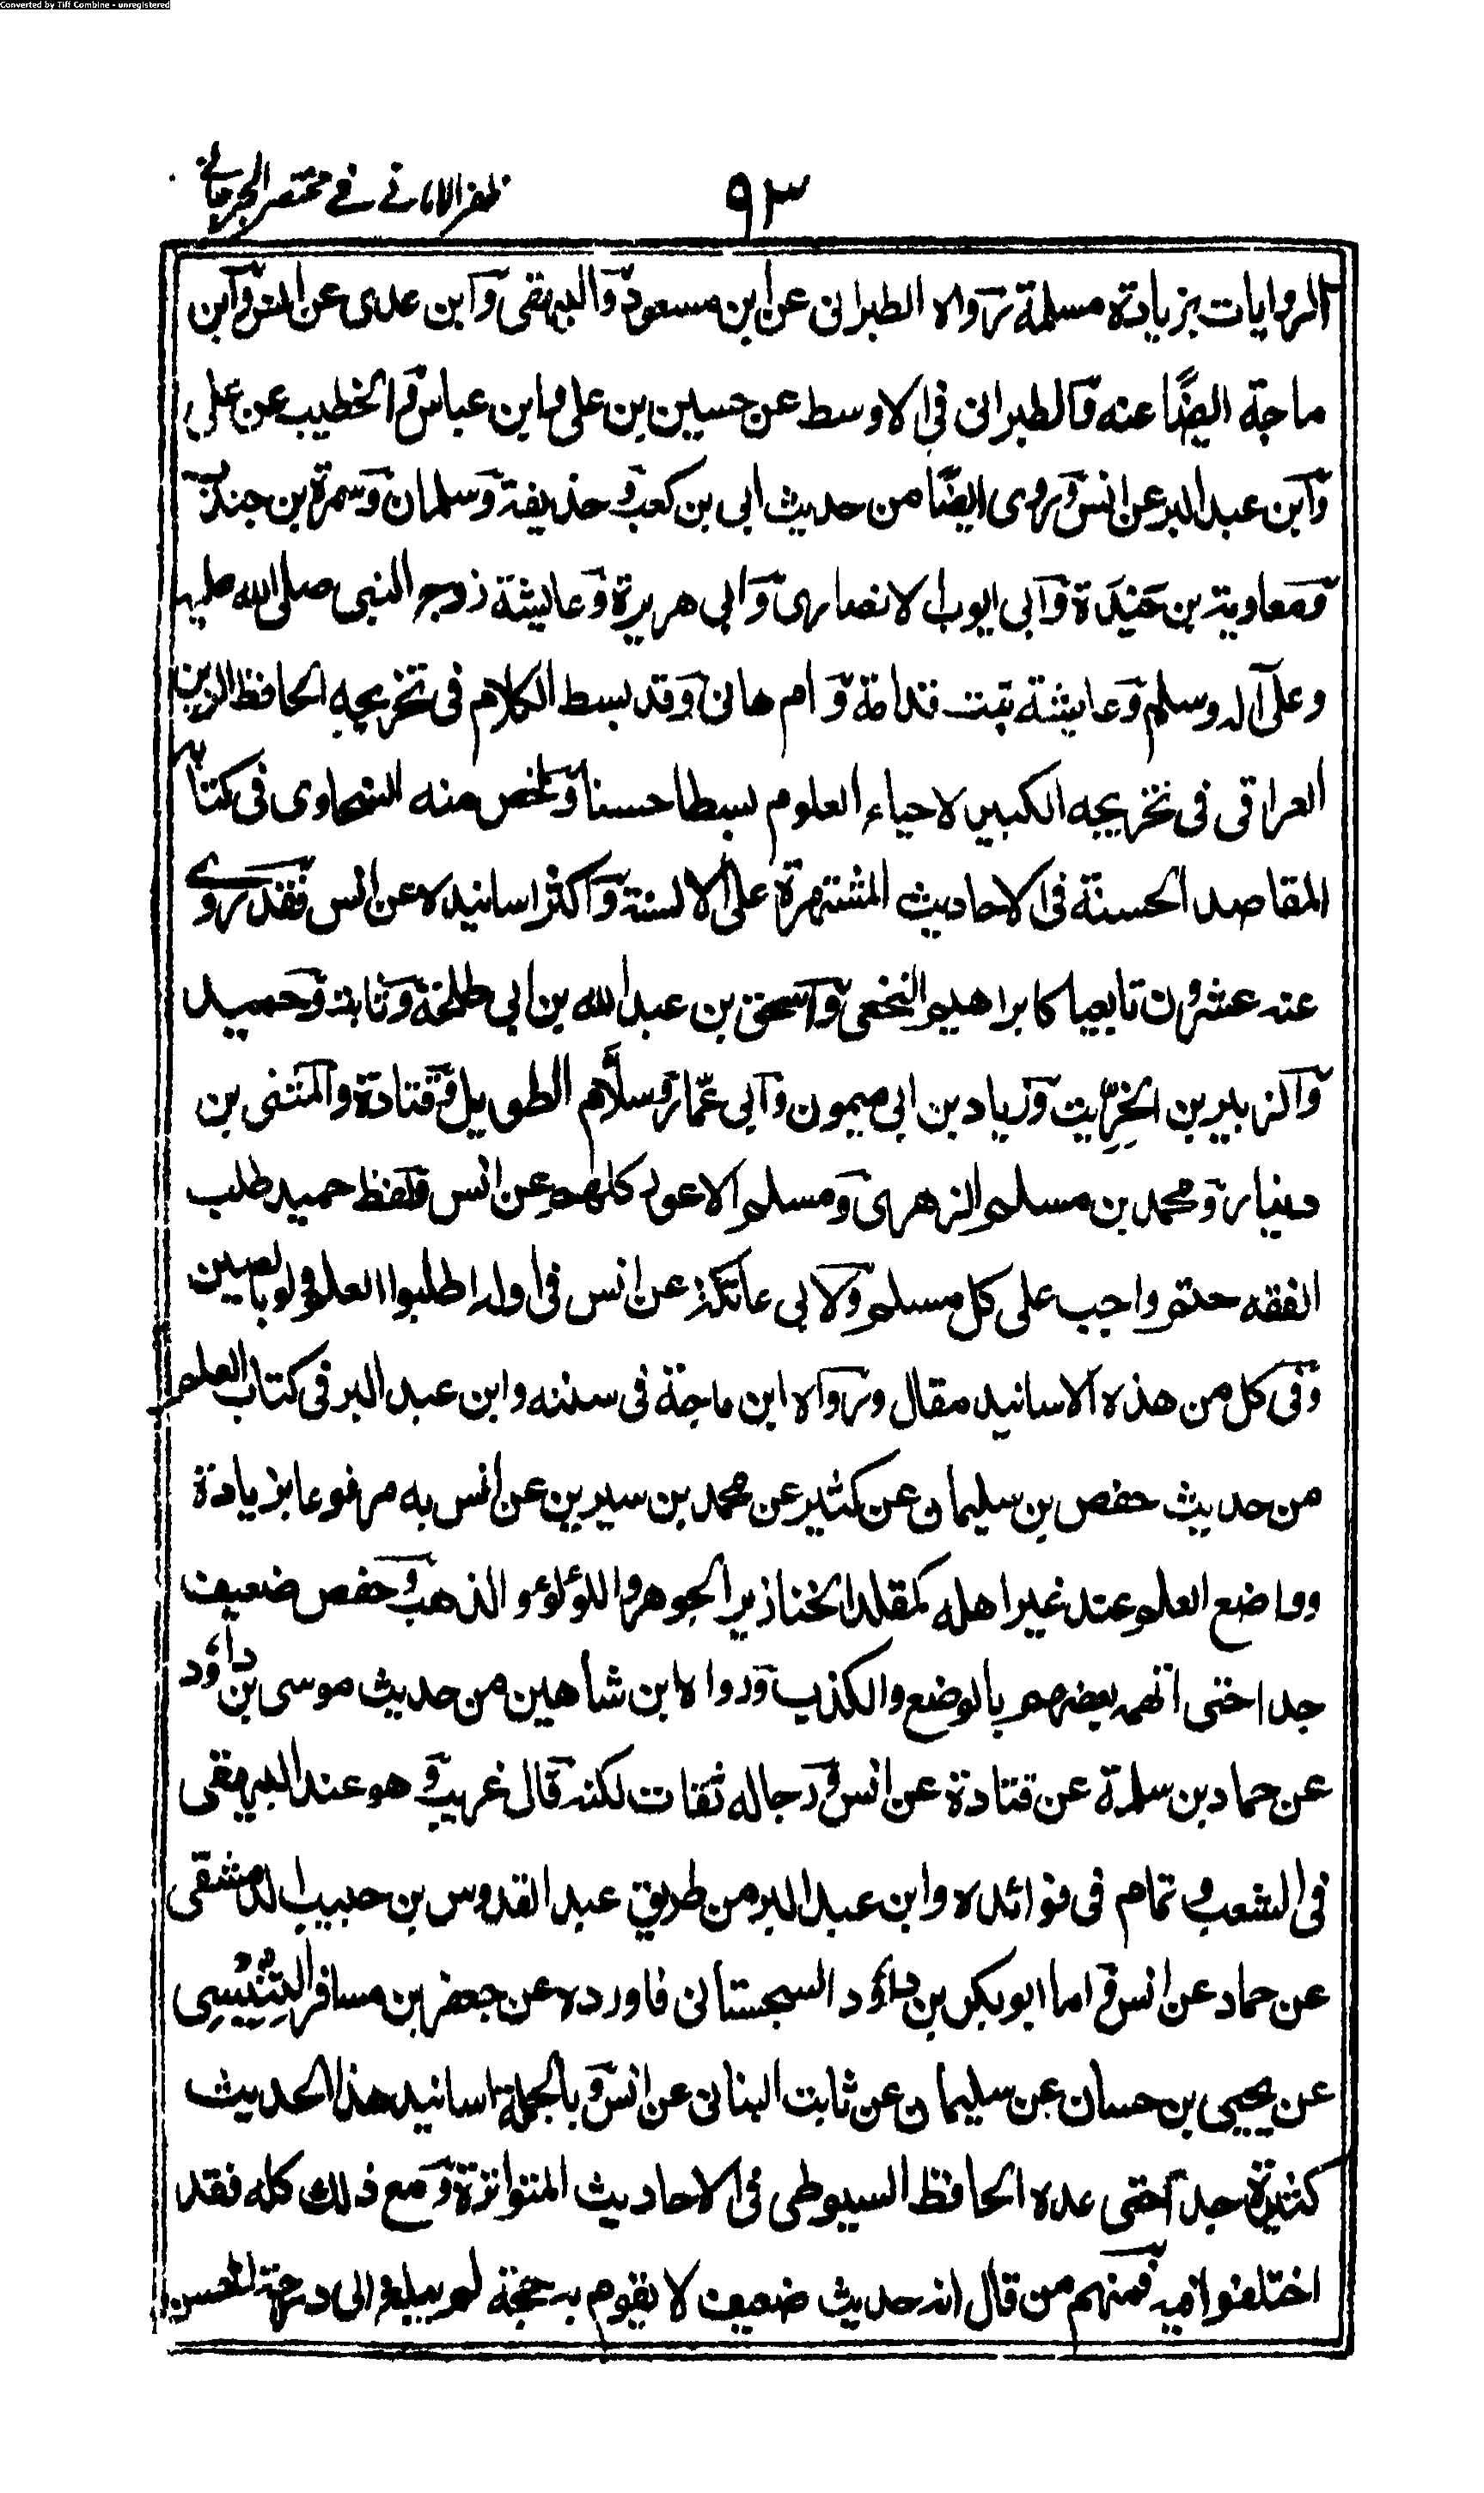 Converted by Tiff Combine - unregistered
٩٣ ظفر الامانے فے مختصر الجرجانے
الروايات بزيادة مسلمة رواه الطبرانى عن ابن مسعود والبيهقى وابن عدى عن انس وابن
ماجة ايضًا عنه والطبرانى فى الاوسط عن حسين بن على وابن عباس والخطيب عن على
وابن عبد البر عن انس وروى ايضًا من حديث ابى بن كعب وحذيفة وسلمان وسمرة بن جندب
ومعاوية بن حَيْدَة وابى ايوب الانصارى وابى هريرة وعايشة زوج النبى صلى الله عليه
وعلى آله وسلم وعايشة بنت قدامة وام هانى وقد بسط الكلام فى تخريجه الحافظ الزين
العراقى فى تخريجه الكبير لاحياء العلوم بسطا حسنا ولخص منه السخاوى فى كتابه
المقاصد الحسنة فى الاحاديث المشتهرة على الالسنة واكثر اسانيده عن انس فقد روى
عنه عشرون تابعيا كابراهيم النخعى واسحق بن عبد الله بن ابى طلحة وثابت وحميد
والزبير بن الخِرِّيت وزياد بن ابى ميمون وابى عمّار وسلّام الطويل وقتادة والمثنى بن
دينار ومحمد بن مسلم الزهرى ومسلم الاعور كلهم عن انس ولفظ حميد طلب
الفقه حتم واجب على كل مسلم ولابى عاتكة عن انس فى اوله اطلبوا العلم ولو بالصين
وفى كل من هذه الاسانيد مقال ورواه ابن ماجة فى سننه وابن عبد البر فى كتاب العلم
من حديث حفص بن سليمان عن كثير عن محمد بن سيرين عن انس به مرفوعا بزيادة
وواضع العلم عند غير اهله كمقلد الخنازير الجوهر واللؤلؤ والذهب وحفص ضعيف
جدا حتى اتهمه بعضهم بالوضع والكذب ورواه ابن شاهين من حديث موسى بن داؤد
عن حماد بن سلمة عن قتادة عن انس ورجاله ثقات لكنه قال غريب وهو عند البيهقى
فى الشعب وتمام فى فوائده وابن عبد البر من طريق عبد القدوس بن حبيب الدمشقى
عن حماد عن انس واما ابو بكر بن داؤد السجستانى فاورده عن جعفر بن مسافر التِنِّيْسِى
عن يحيى بن حسان عن سليمان عن ثابت البنانى عن انس وبالجملة اسانيد هذا الحديث
كثيرة جدا حتى عده الحافظ السيوطى فى الاحاديث المتواترة ومع ذلك كله فقد
اختلفوا فيه فمنهم من قال انه حديث ضعيف لا يقوم به حجة لم يبلغ الى درجة الحسن